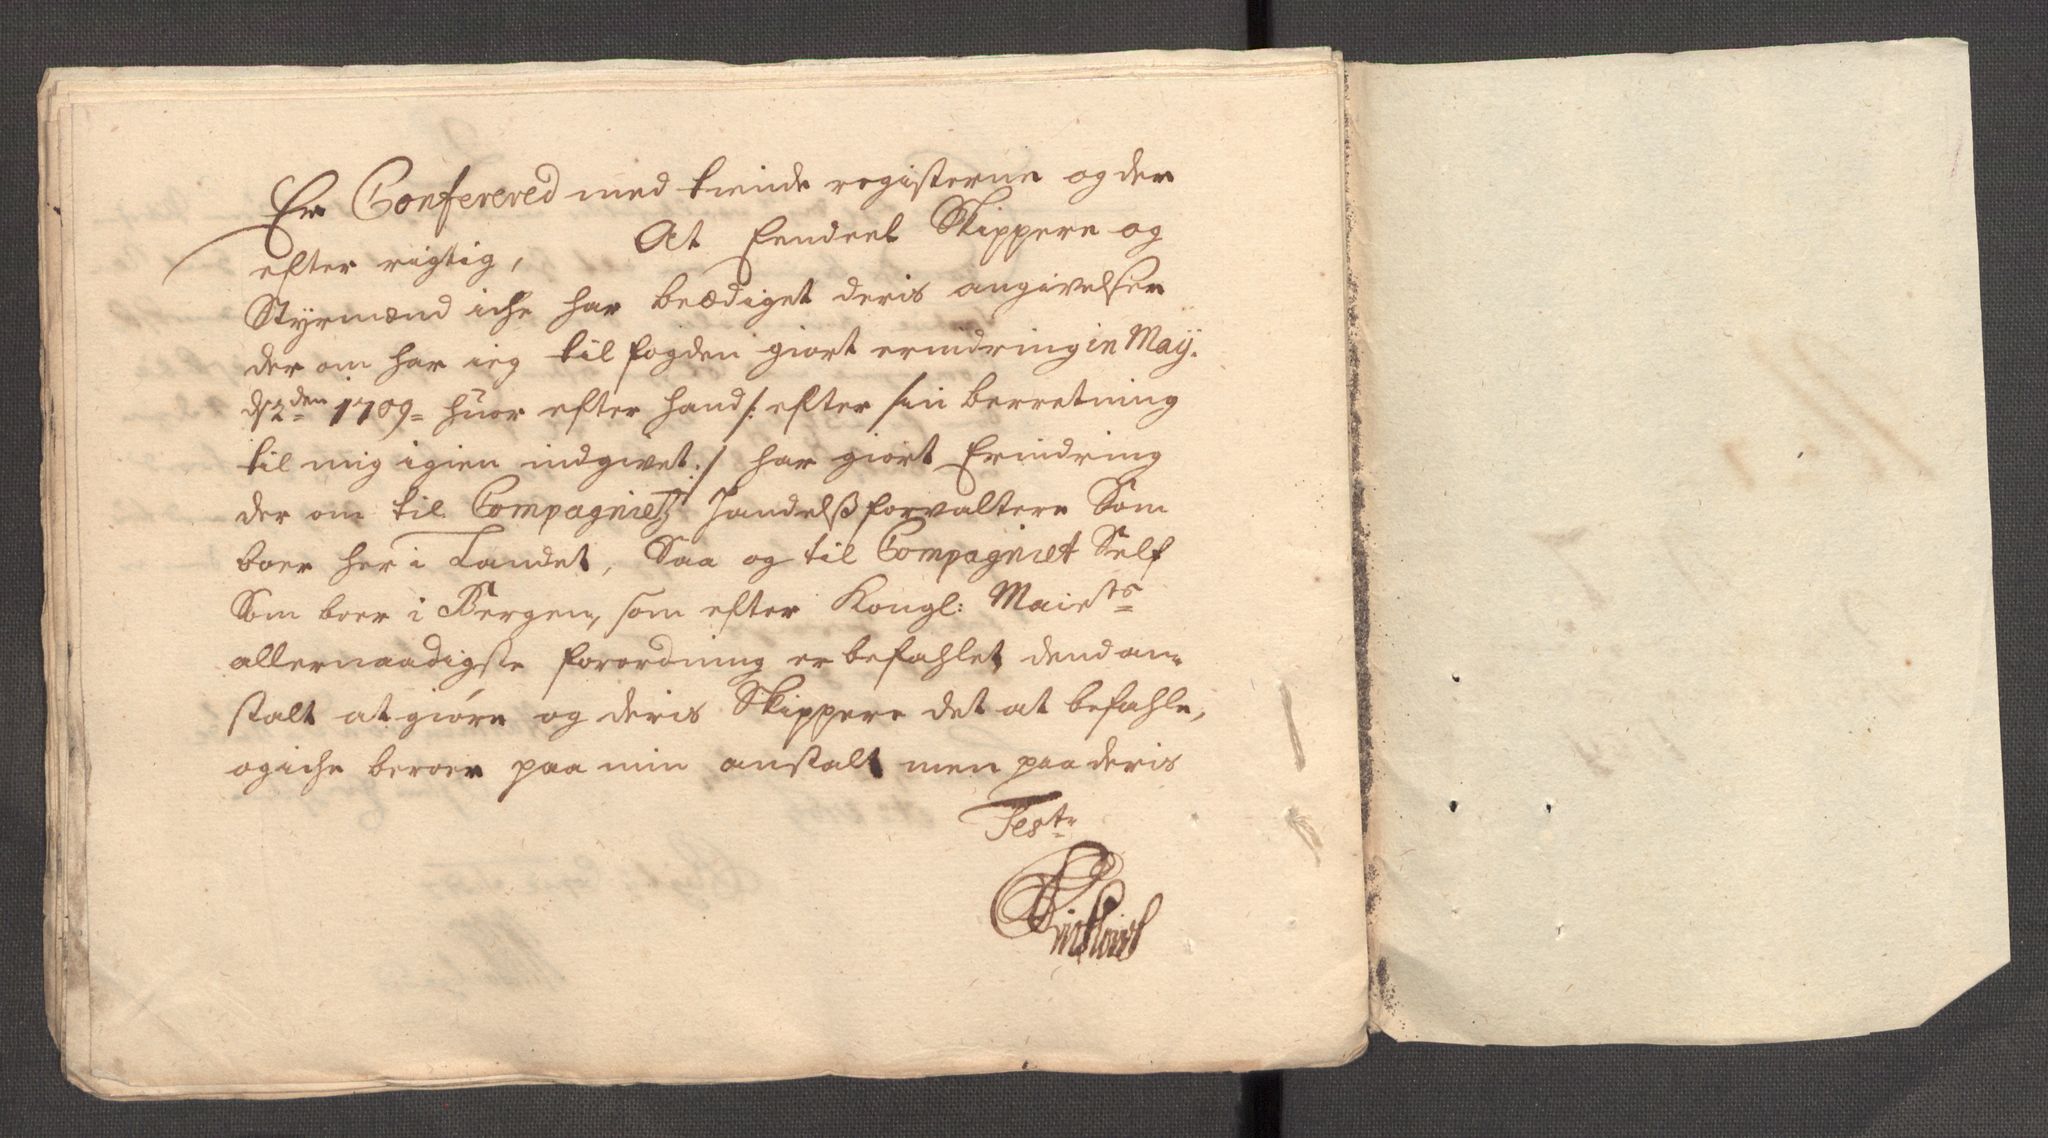 Er Conferered med tiende registerne og der
efter rigtig, At Eendeel Skippere og
Styrmænd iche har beædiget deris angivelser
der om har ieg til fogden giort erindring in May.
d 2den 1709 huor efter hand /: efter sin berretning
til mig igien indgivet :/ har giort Erindring
der om til Compagnietz Handelsß forvaltere Som
boer her i Landet, Saa og til Compagniet Self
Som boer i Bergen, som efter Kongl: Maiets
allernaadigste forordning er befahlet dend an-
stalt at giøre og deris Skippere det at befahle,
og iche beroer paa min anstalt men paa deris
Test